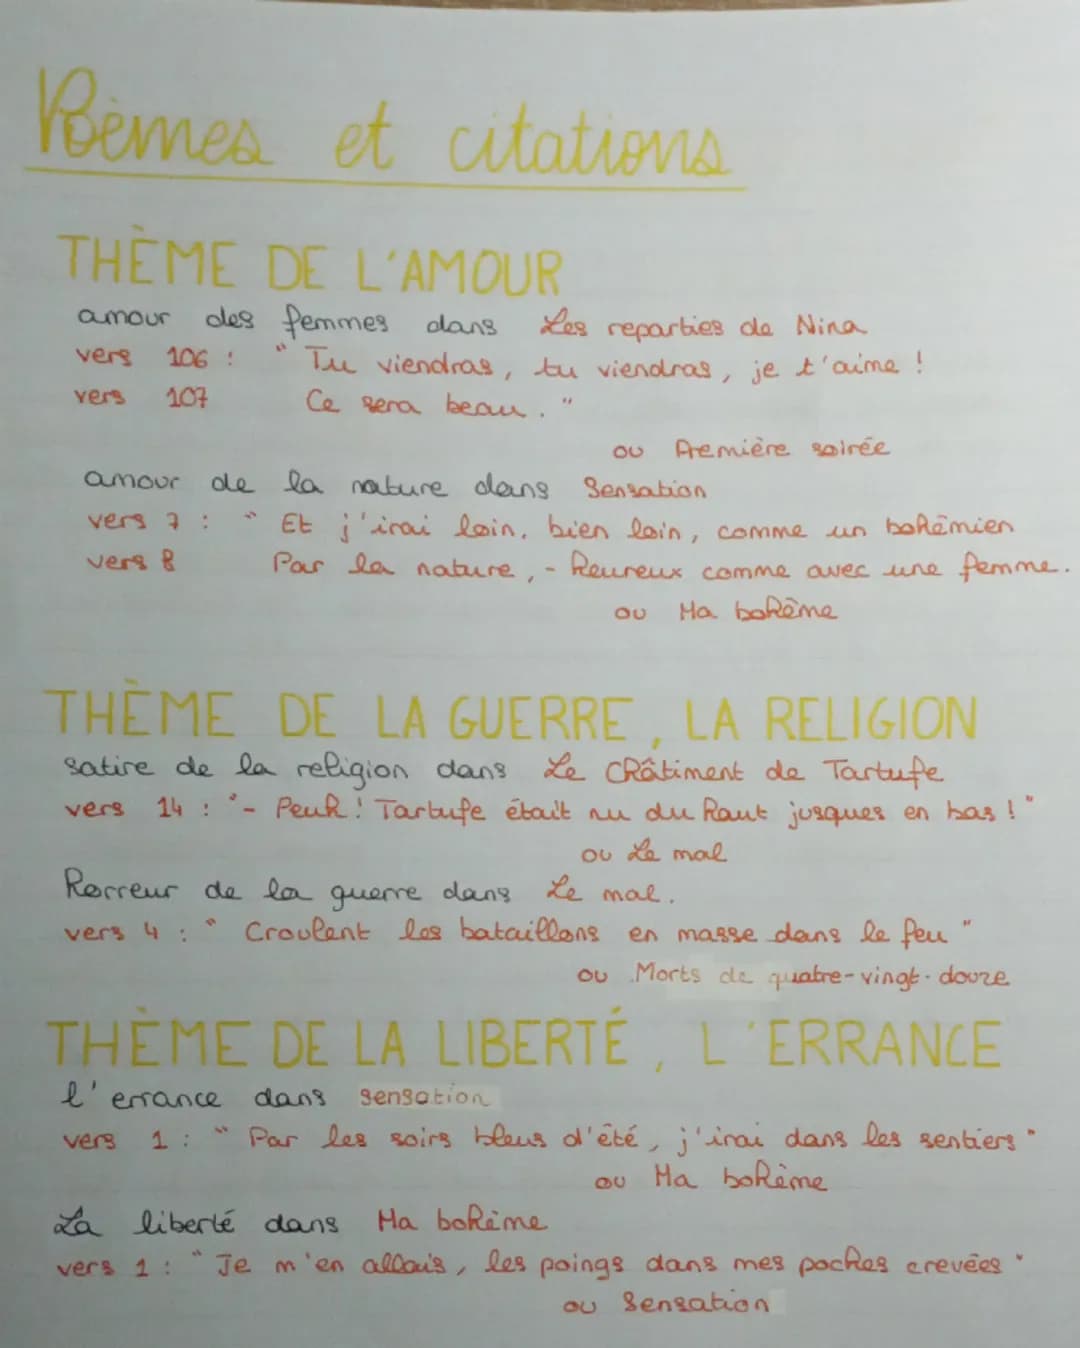 Poèmes et citations
THÈME DE L'AMOUR
amour des femmes dans Les reparties de Nina
vers 106 : " Tu viendras, tu viendras, je t'aime !
vers 107 Ce sera beau. "
ou Première soirée
amour de la nature dans Sensation
vers 7 : " Et j'irai loin, bien loin, comme un bohémien
vers 8 Par la nature, - heureux comme avec une femme.
ou Ma bohème
THÈME DE LA GUERRE, LA RELIGION
satire de la religion dans Le Châtiment de Tartufe
vers 14 : "- Peuh ! Tartufe était nu du haut jusques en bas ! "
ou Le mal
horreur de la guerre dans Le mal.
vers 4 : " Croulent les bataillons en masse dans le feu "
ou Morts de quatre-vingt-douze
THÈME DE LA LIBERTÉ, L'ERRANCE
l'errance dans sensation
vers 1 : " Par les soirs bleus d'été, j'irai dans les sentiers "
ou Ma bohème
La liberté dans Ma bohème
vers 1 : " Je m'en allais, les poings dans mes poches crevées "
ou Sensation